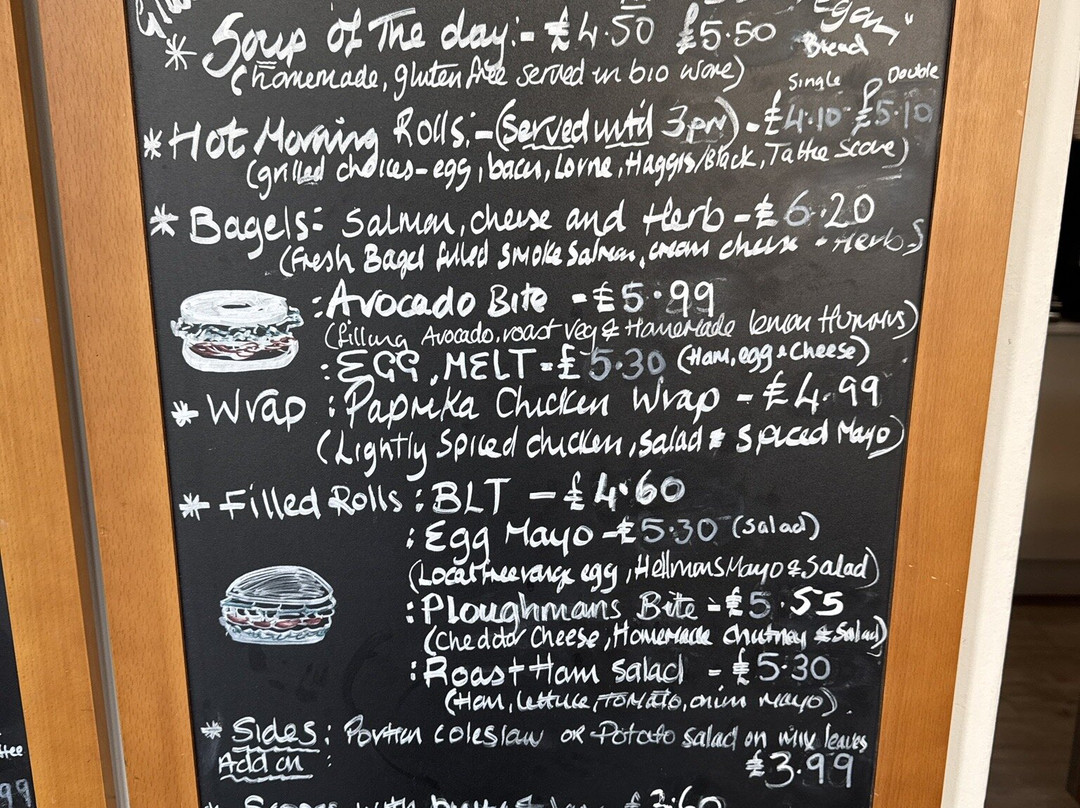 egan"
* Soup of The day:- £4.50 £5.50 Bread
(homemade, gluten free served in bio ware)
Single Double
* Hot Morning Rolls:- (Served until 3pm) - £4.10 £5.10
(grilled choices - egg, bacon, Lorne, Haggis/Black, Tattie Scone)
* Bagels: Salmon, cheese and Herb - £6.20
(Fresh Bagel filled smoke salmon, cream cheese + Herbs
: Avocado Bite - £5.99
(filling Avocado, roast veg & Homemade lemon Hummus)
: EGG, MELT - £5.30 (Ham, egg & Cheese)
* Wrap : Paprika Chicken Wrap - £4.99
(Lightly Spiced chicken, salad & spiced Mayo)
* Filled Rolls : BLT - £4.60
: Egg Mayo - £5.30 (salad)
(Local free range egg, Hellmans Mayo & Salad)
: Ploughmans Bite - £5.55
(cheddar cheese, Homemade chutney & Salad)
: Roast Ham Salad - £5.30
(Ham, lettuce, TOMATO, onion mayo).
* Sides : Portion coleslaw or Potato salad on mix leaves
Add on : £3.99
* Scones with £3.60
99